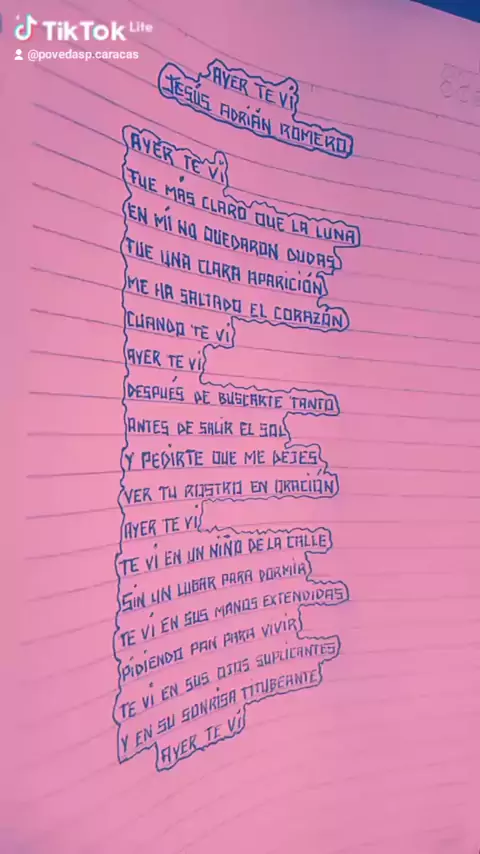 TikTok Lite
@povedasp.caracas
AYER TE VÍ
JESÚS ADRIÁN ROMERO
AYER TE VÍ
FUE MÁS CLARO QUE LA LUNA
EN MÍ NO QUEDARON DUDAS
FUE UNA CLARA APARICIÓN
ME HA SALTADO EL CORAZÓN
CUANDO TE VÍ
AYER TE VÍ
DESPUÉS DE BUSCARTE TANTO
ANTES DE SALIR EL SOL
Y PEDIRTE QUE ME DEJES
VER TU ROSTRO EN ORACIÓN
AYER TE VÍ
TE VÍ EN UN NIÑO DE LA CALLE
SIN UN LUGAR PARA DORMIR
TE VÍ EN SUS MANOS EXTENDIDAS
PIDIENDO PAN PARA VIVIR
TE VÍ EN SUS OJOS SUPLICANTES
Y EN SU SONRISA TITUBEANTE
AYER TE VÍ